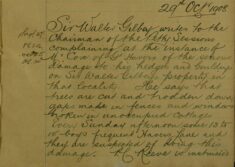 29th Oct 1908.
Sir Walter Gilbey writes to the
Chairman of the Stevens
complaining at the instance of
Mr Cove of of the serious
damage to his hedges and buildings
on Sir Walter Gilbey's property in
that locality. He says that
trees are cut and trodden down
gaps made in fences and windows
broken in unoccupied cottages.
Every Sunday afternoon some 12 to
boys frequent Lane and
they are suspected of doing this
damage. Reeve to